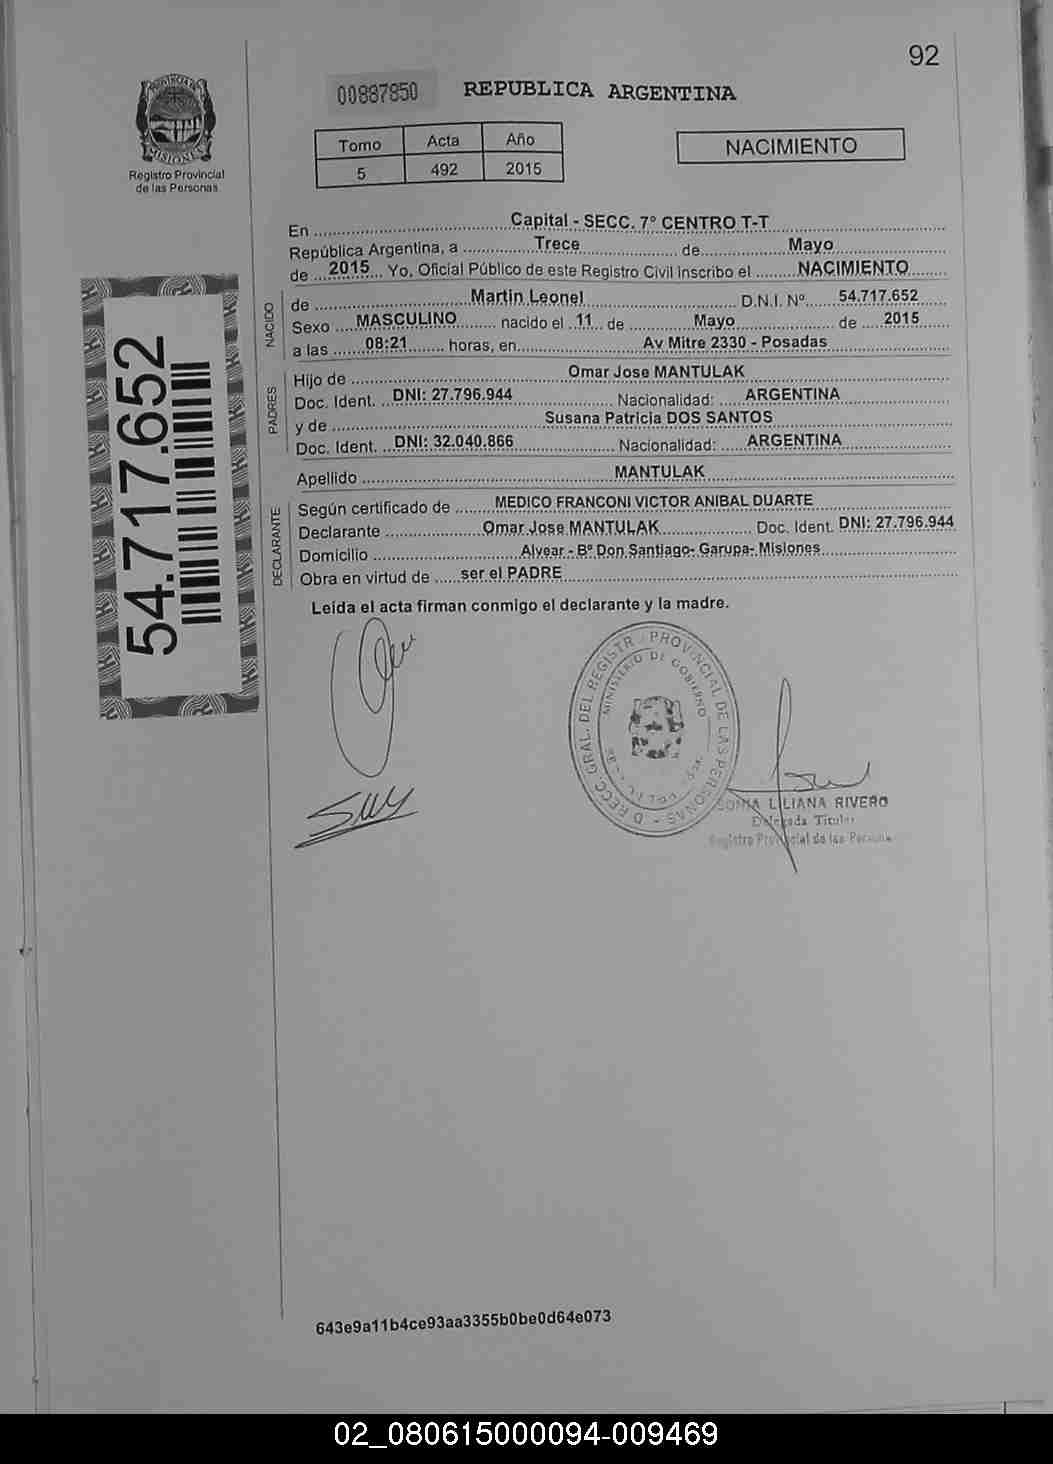 92
PROVINCIA DE
MISIONES
Registro Provincial
de las Personas
00887850
REPUBLICA ARGENTINA
Tomo Acta Año
5 492 2015
NACIMIENTO
En Capital - SECC. 7° CENTRO T-T
República Argentina, a Trece de Mayo
de 2015 Yo, Oficial Público de este Registro Civil inscribo el NACIMIENTO
NACIDO
de Martin Leonel D.N.I. Nº 54.717.652
Sexo MASCULINO nacido el 11 de Mayo de 2015
a las 08:21 horas, en Av Mitre 2330 - Posadas
PADRES
Hijo de Omar Jose MANTULAK
Doc. Ident. DNI: 27.796.944 Nacionalidad: ARGENTINA
y de Susana Patricia DOS SANTOS
Doc. Ident. DNI: 32.040.866 Nacionalidad: ARGENTINA
Apellido MANTULAK
DECLARANTE
Según certificado de MEDICO FRANCONI VICTOR ANIBAL DUARTE
Declarante Omar Jose MANTULAK Doc. Ident. DNI: 27.796.944
Domicilio Alvear - Bº Don Santiago- Garupa- Misiones
Obra en virtud de ser el PADRE
Leida el acta firman conmigo el declarante y la madre.
54.717.652
DIRECC. GRAL. DEL REGISTR PROVINCIAL DE LAS PERSONAS
MINISTERIO DE GOBIERNO
SONIA LILIANA RIVERO
Delegada Titular
Registro Provincial de las Personas
643e9a11b4ce93aa3355b0be0d64e073
02_080615000094-009469